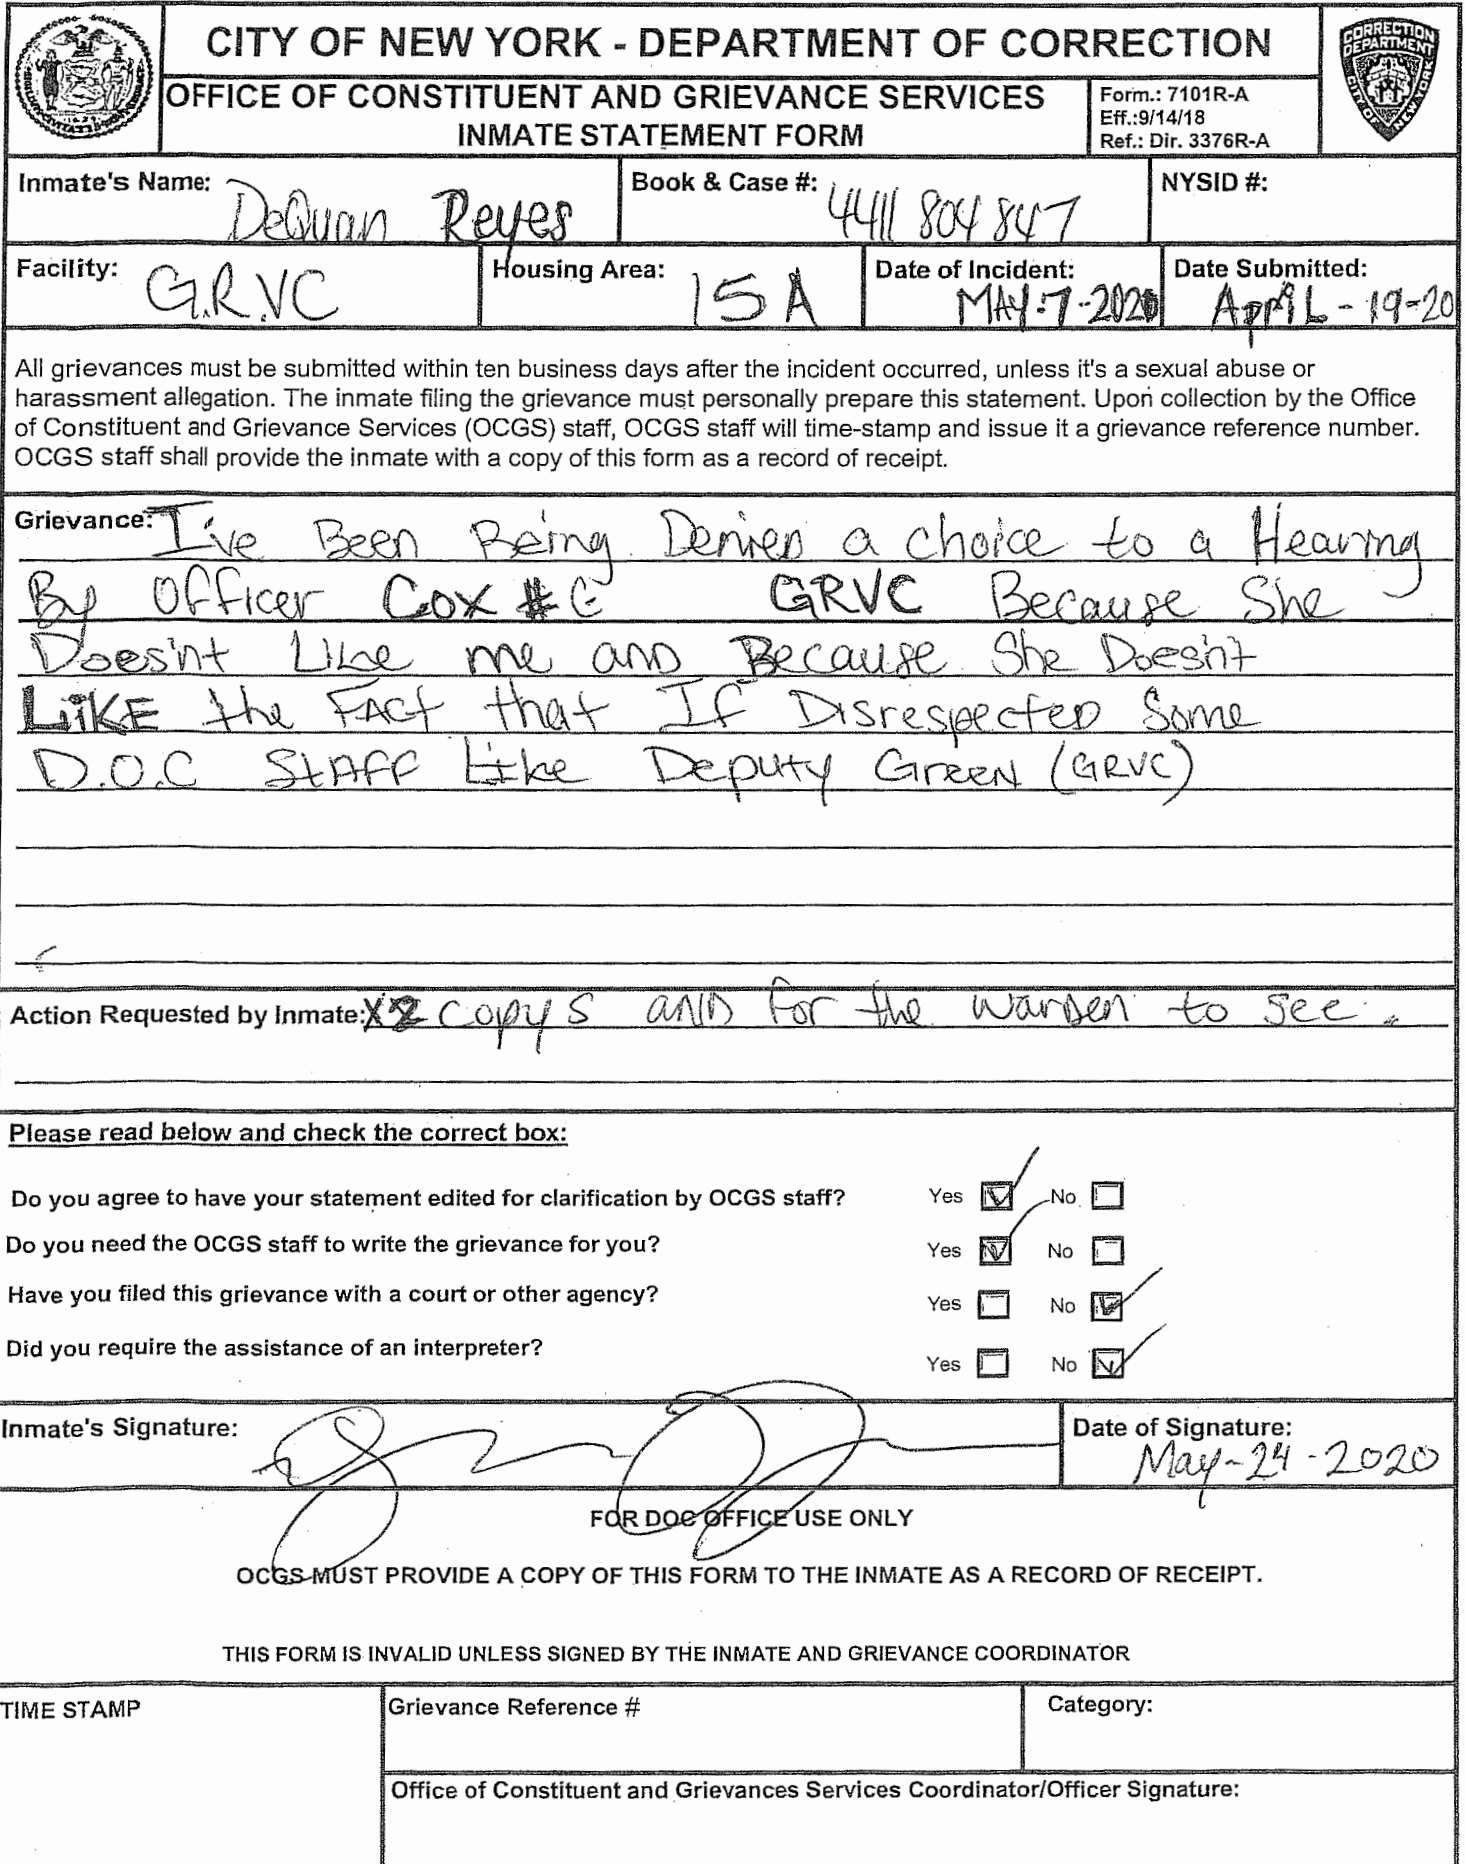 CITY OF NEW YORK - DEPARTMENT OF CORRECTION
OFFICE OF CONSTITUENT AND GRIEVANCE SERVICES
INMATE STATEMENT FORM
Form.: 7101R-A
Eff.:9/14/18
Ref.: Dir. 3376R-A
CORRECTION
DEPARTMENT
CITY OF NEW YORK
Inmate's Name: DeQuan Reyes
Book & Case #: 4411804847
NYSID #:
Facility: G.R.VC
Housing Area: 15A
Date of Incident: MAY-7-2020
Date Submitted: April-19-20
All grievances must be submitted within ten business days after the incident occurred, unless it's a sexual abuse or
harassment allegation. The inmate filing the grievance must personally prepare this statement. Upon collection by the Office
of Constituent and Grievance Services (OCGS) staff, OCGS staff will time-stamp and issue it a grievance reference number.
OCGS staff shall provide the inmate with a copy of this form as a record of receipt.
Grievance: I've Been Being Denied a choice to a Hearing
By Officer Cox # GRVC Because She
Does'nt Like me and Because She Does'nt
LiKE the FAct that If Disrespected Some
D.O.C StAFF Like Deputy Green (GRVC)
Action Requested by Inmate: X2 copys and for the warden to see.
Please read below and check the correct box:
Do you agree to have your statement edited for clarification by OCGS staff? Yes No
Do you need the OCGS staff to write the grievance for you? Yes No
Have you filed this grievance with a court or other agency? Yes No
Did you require the assistance of an interpreter? Yes No
Inmate's Signature:
Date of Signature: May-24-2020
FOR DOC OFFICE USE ONLY
OCGS MUST PROVIDE A COPY OF THIS FORM TO THE INMATE AS A RECORD OF RECEIPT.
THIS FORM IS INVALID UNLESS SIGNED BY THE INMATE AND GRIEVANCE COORDINATOR
TIME STAMP
Grievance Reference #
Category:
Office of Constituent and Grievances Services Coordinator/Officer Signature: